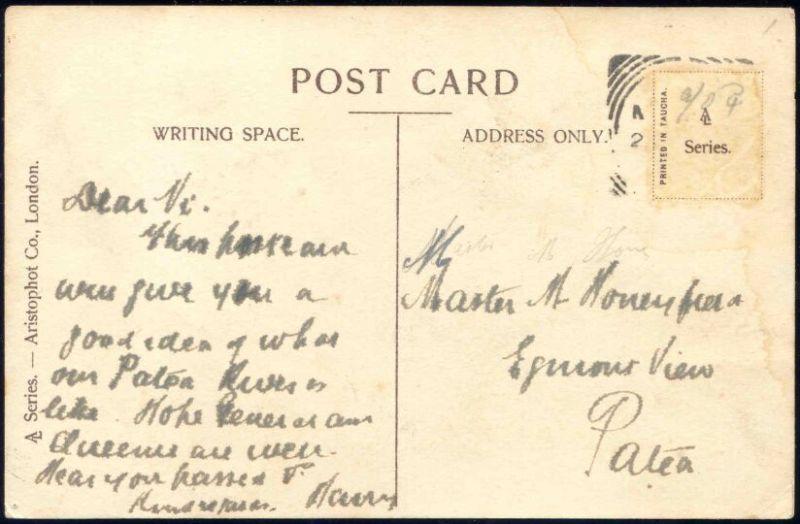 POST CARD
WRITING SPACE.
ADDRESS ONLY.
PRINTED IN TAUCHA.
Series.
N
2
Series. — Aristophot Co., London.
Dear Vi.
This postcard
will give you a
good idea of what
our Patea River is
like. Hope General and
Queenie are well.
Hear you passed
Kind regards. Harry
Master M Honeyfield
Egmont View
Patea